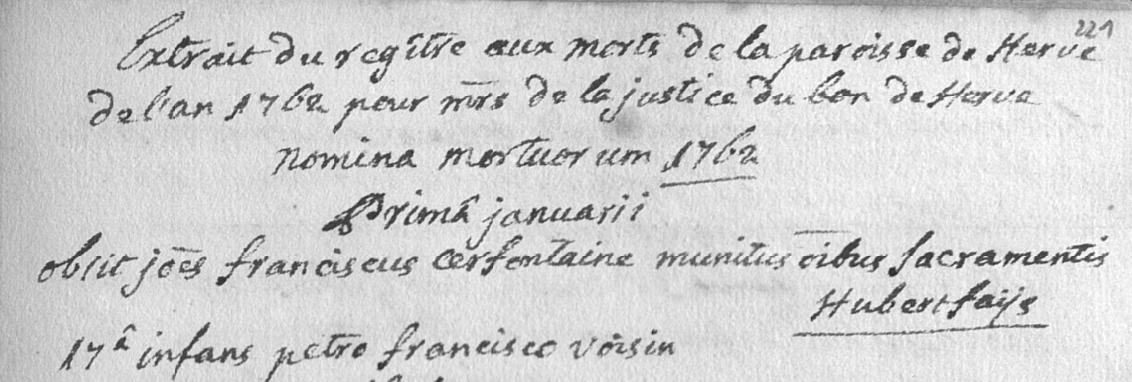 221
Extrait du regître aux morts de la paroisse de Herve
de l'an 1762 pour m̅r̅s de la justice du ban de Herve
nomina mortuorum 1762
Primâ januarii
obiit jo̅e̅s franciscus cerfontaine munitus o̅i̅bus sacramentis
Hubert faijs
17â infans petro francisco voisin